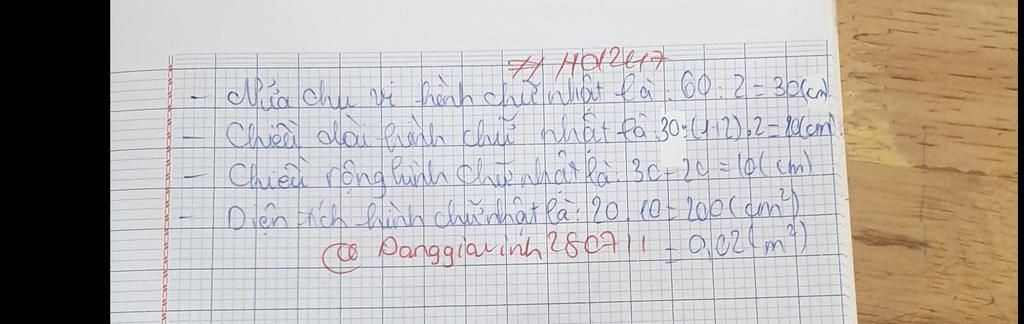 # HOI247
- Nửa chu vi hình chữ nhật là: 60 : 2 = 30(cm)
- Chiều dài hình chữ nhật là: 30:(1+2).2=20(cm).
- Chiều rộng hình chữ nhật là: 30-20=10(cm)
- Diện tích hình chữ nhật là: 20.10=200(cm²)
@ Danggiavinh280711 = 0,02(m²)